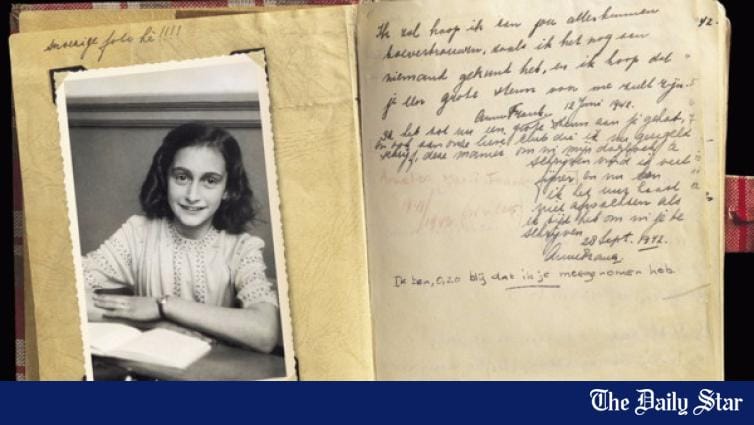 snoezige foto hè!!!!
Ik zal hoop ik aan jou alles kunnen
toevertrouwen, zoals ik het nog aan
niemand gekund heb, en ik hoop dat
je een grote steun voor me zult zijn.
Anne Frank. 12 Juni 1942.
Ik heb tot nu een grote steun aan je gehad,
en ook aan onze lieve club die ik nu geregeld
schrijf, deze manier om in mijn dagboek te
schrijven vind ik veel
fijner en nu kan
ik het uur haast
niet afwachten als
ik tijd heb om in je te
schrijven.
28 Sept. 1942.
Anne Frank.
Ik ben, o, zo blij dat ik je meegenomen heb
The Daily Star